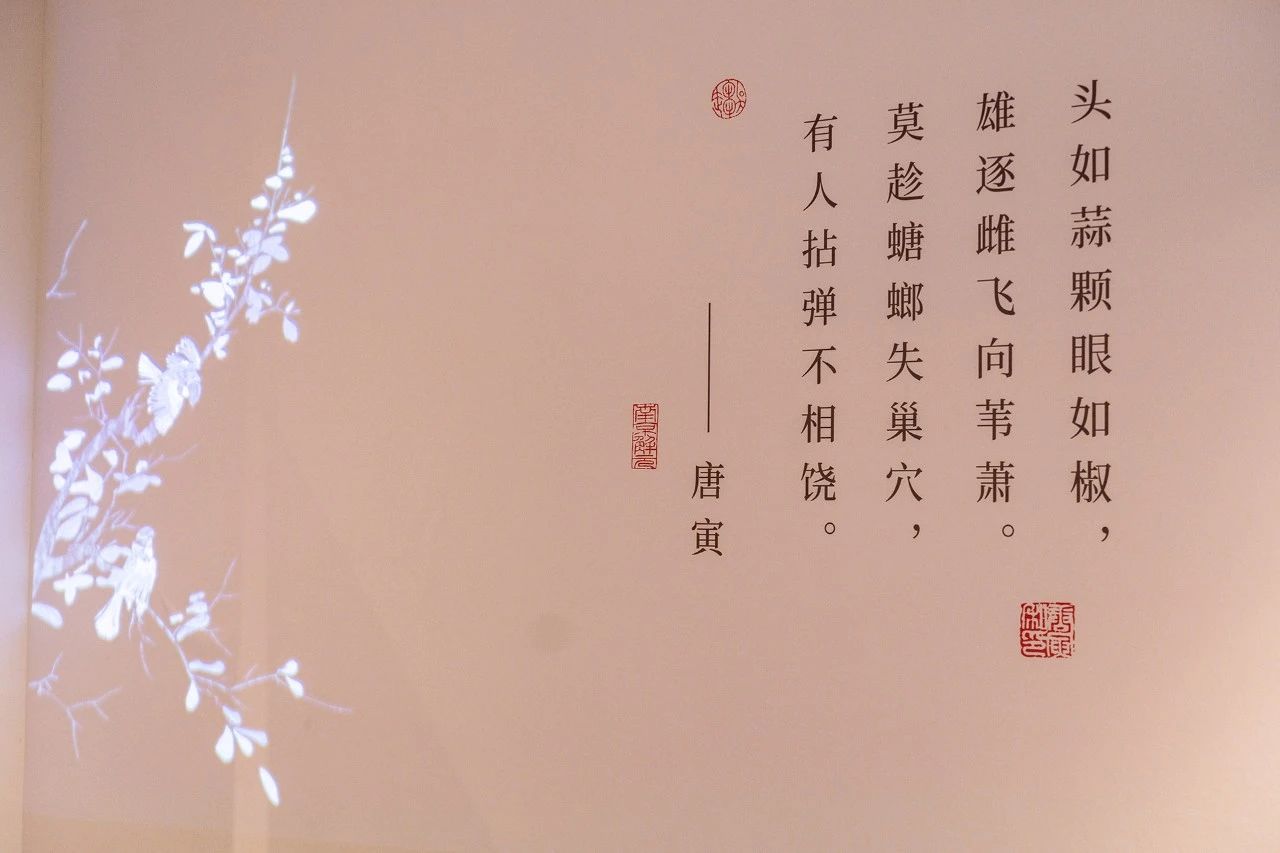 头如蒜颗眼如椒，
雄逐雌飞向苇萧。
莫趁螗螂失巢穴，
有人拈弹不相饶。
——唐寅
南京解元